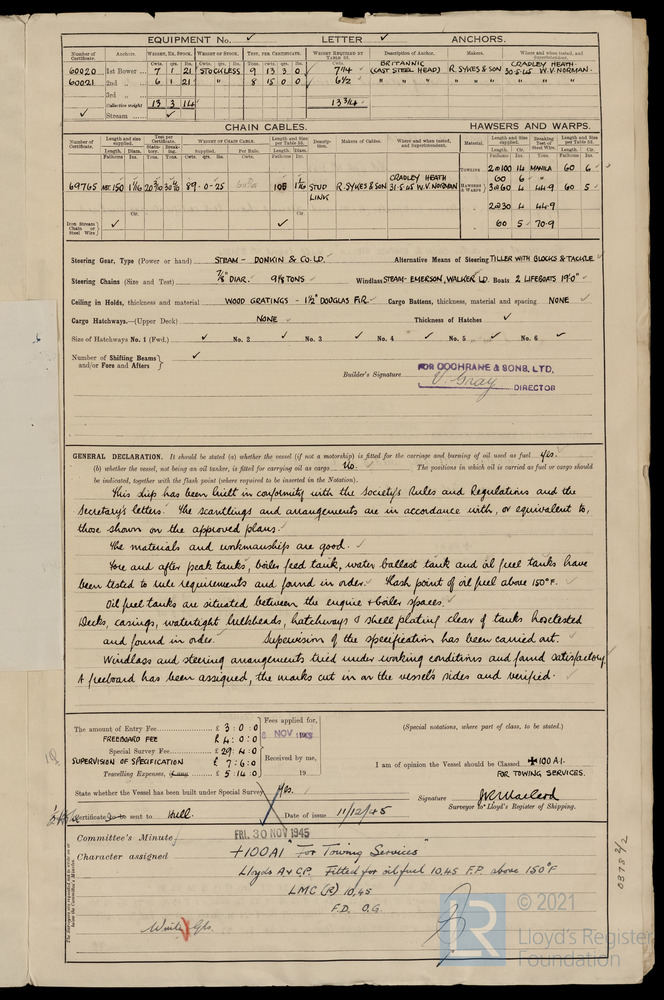 EQUIPMENT No. ✓ LETTER ✓ ANCHORS.
Number of Certificate. Anchors. WEIGHT, EX. STOCK. WEIGHT OF STOCK. TEST, PER CERTIFICATE. WEIGHT REQUIRED BY TABLE 53. Description of Anchor. Makers. Where and when tested, and Superintendent.
Cwts. qrs. lbs. Cwts. qrs. lbs. Tons. cwts. qrs. lbs. Cwts.
60020 1st Bower ... 7 1 21 STOCKLESS 9 13 3 0 7 1/4 BRITANNIC (CAST STEEL HEAD) R. SYKES & SON CRADLEY HEATH. 30·5·45 W.V. NORMAN.
60021 2nd " ... 6 1 21 " " 8 15 0 0 6 1/2 " " " " " "
3rd " ...
Collective weight 13 3 14 13 3/4
✓ Stream ... ✓
CHAIN CABLES. HAWSERS AND WARPS.
Number of Certificate. Length and size supplied. Test per Certificate. WEIGHT OF CHAIN CABLE. Length and Size per Table 53. Description. Makers of Cables. Where and when tested, and Superintendent. Material. Length and Size supplied. Breaking Test of Steel Wire. Length and Size per Table 53.
Length. Diam. Statutory. Breaking. Supplied. Per Rule. Length. Diam. Length. Cir. Length. Cir.
Fathoms Ins. Tons. Tons. Cwts. qrs. lbs. Cwts. Fathoms Ins. Fathoms Ins. Tons. Fathoms Ins.
TOWLINE 2@100 14 MANILA 60 6
60 6 "
69765 150 1 1/16 89-0-25 105 1 1/16 STUD LINK R. SYKES & SON CRADLEY HEATH 31·5·45 W.V. NORMAN HAWSERS & WARPS 3@60 4 44·9 60 5
2@30 4 44·9
Iron Stream Chain or Steel Wire ✓ Cir. Cir. ✓ 60 5 70·9
Steering Gear, Type (Power or hand) STEAM - DONKIN & CO. LD. Alternative Means of Steering TILLER WITH BLOCKS & TACKLE
Steering Chains (Size and Test) 7/8" DIAR. 9 1/8 TONS Windlass STEAM - EMERSON, WALKER LD. Boats 2 LIFEBOATS 19'0"
Ceiling in Holds, thickness and material WOOD GRATINGS - 1 1/2" DOUGLAS FIR. Cargo Battens, thickness, material and spacing NONE
Cargo Hatchways.—(Upper Deck) NONE Thickness of Hatches ✓
Size of Hatchways No. 1 (Fwd.) ✓ No. 2 ✓ No. 3 ✓ No. 4 ✓ No. 5 ✓ No. 6 ✓
Number of Shifting Beams and/or Fore and Afters ✓
FOR COCHRANE & SONS, LTD.
Builder's Signature V. Gray DIRECTOR
GENERAL DECLARATION. It should be stated (a) whether the vessel (if not a motorship) is fitted for the carriage and burning of oil used as fuel Yes.
(b) whether the vessel, not being an oil tanker, is fitted for carrying oil as cargo No. The positions in which oil is carried as fuel or cargo should
be indicated, together with the flash point (where required to be inserted in the Notation).
This ship has been built in conformity with the Society's Rules and Regulations and the
Secretary's letters. The scantlings and arrangements are in accordance with, or equivalent to,
those shown on the approved plans.
The materials and workmanship are good.
Fore and after peak tanks, boiler feed tank, water ballast tank and oil fuel tanks have
been tested to rule requirements and found in order. Flash point of oil fuel above 150°F.
Oil fuel tanks are situated between the engine & boiler spaces.
Decks, casings, watertight bulkheads, hatchways & shell plating clear of tanks hose tested
and found in order. Supervision of the specification has been carried out.
Windlass and steering arrangements tried under working conditions and found satisfactory.
A freeboard has been assigned, the marks cut in on the vessel's sides and verified.
The amount of Entry Fee £ 3 : 0 : 0 Fees applied for,
FREEBOARD FEE £ 4 : 0 : 0 8 NOV 1945
Special Survey Fee £ 29 : 4 : 0
SUPERVISION OF SPECIFICATION £ 7 : 6 : 0 Received by me,
Travelling Expenses, if any £ 5 : 14 : 0 19
(Special notations, where part of class, to be stated.)
I am of opinion the Vessel should be Classed ✠100 A1.
FOR TOWING SERVICES.
State whether the Vessel has been built under Special Survey Yes.
Signature
Surveyor to Lloyd's Register of Shipping.
Certificate to be sent to Hull. Date of issue 11/12/45
Committee's Minute FRI. 30 NOV 1945
Character assigned +100A1 "For Towing Services"
Lloyds A & C.P. Fitted for oil fuel 10,45 F.P. above 150°F
LMC 10,45
F.D. O.G.
0373 2/2
© 2021
LR
Lloyd's Register
Foundation